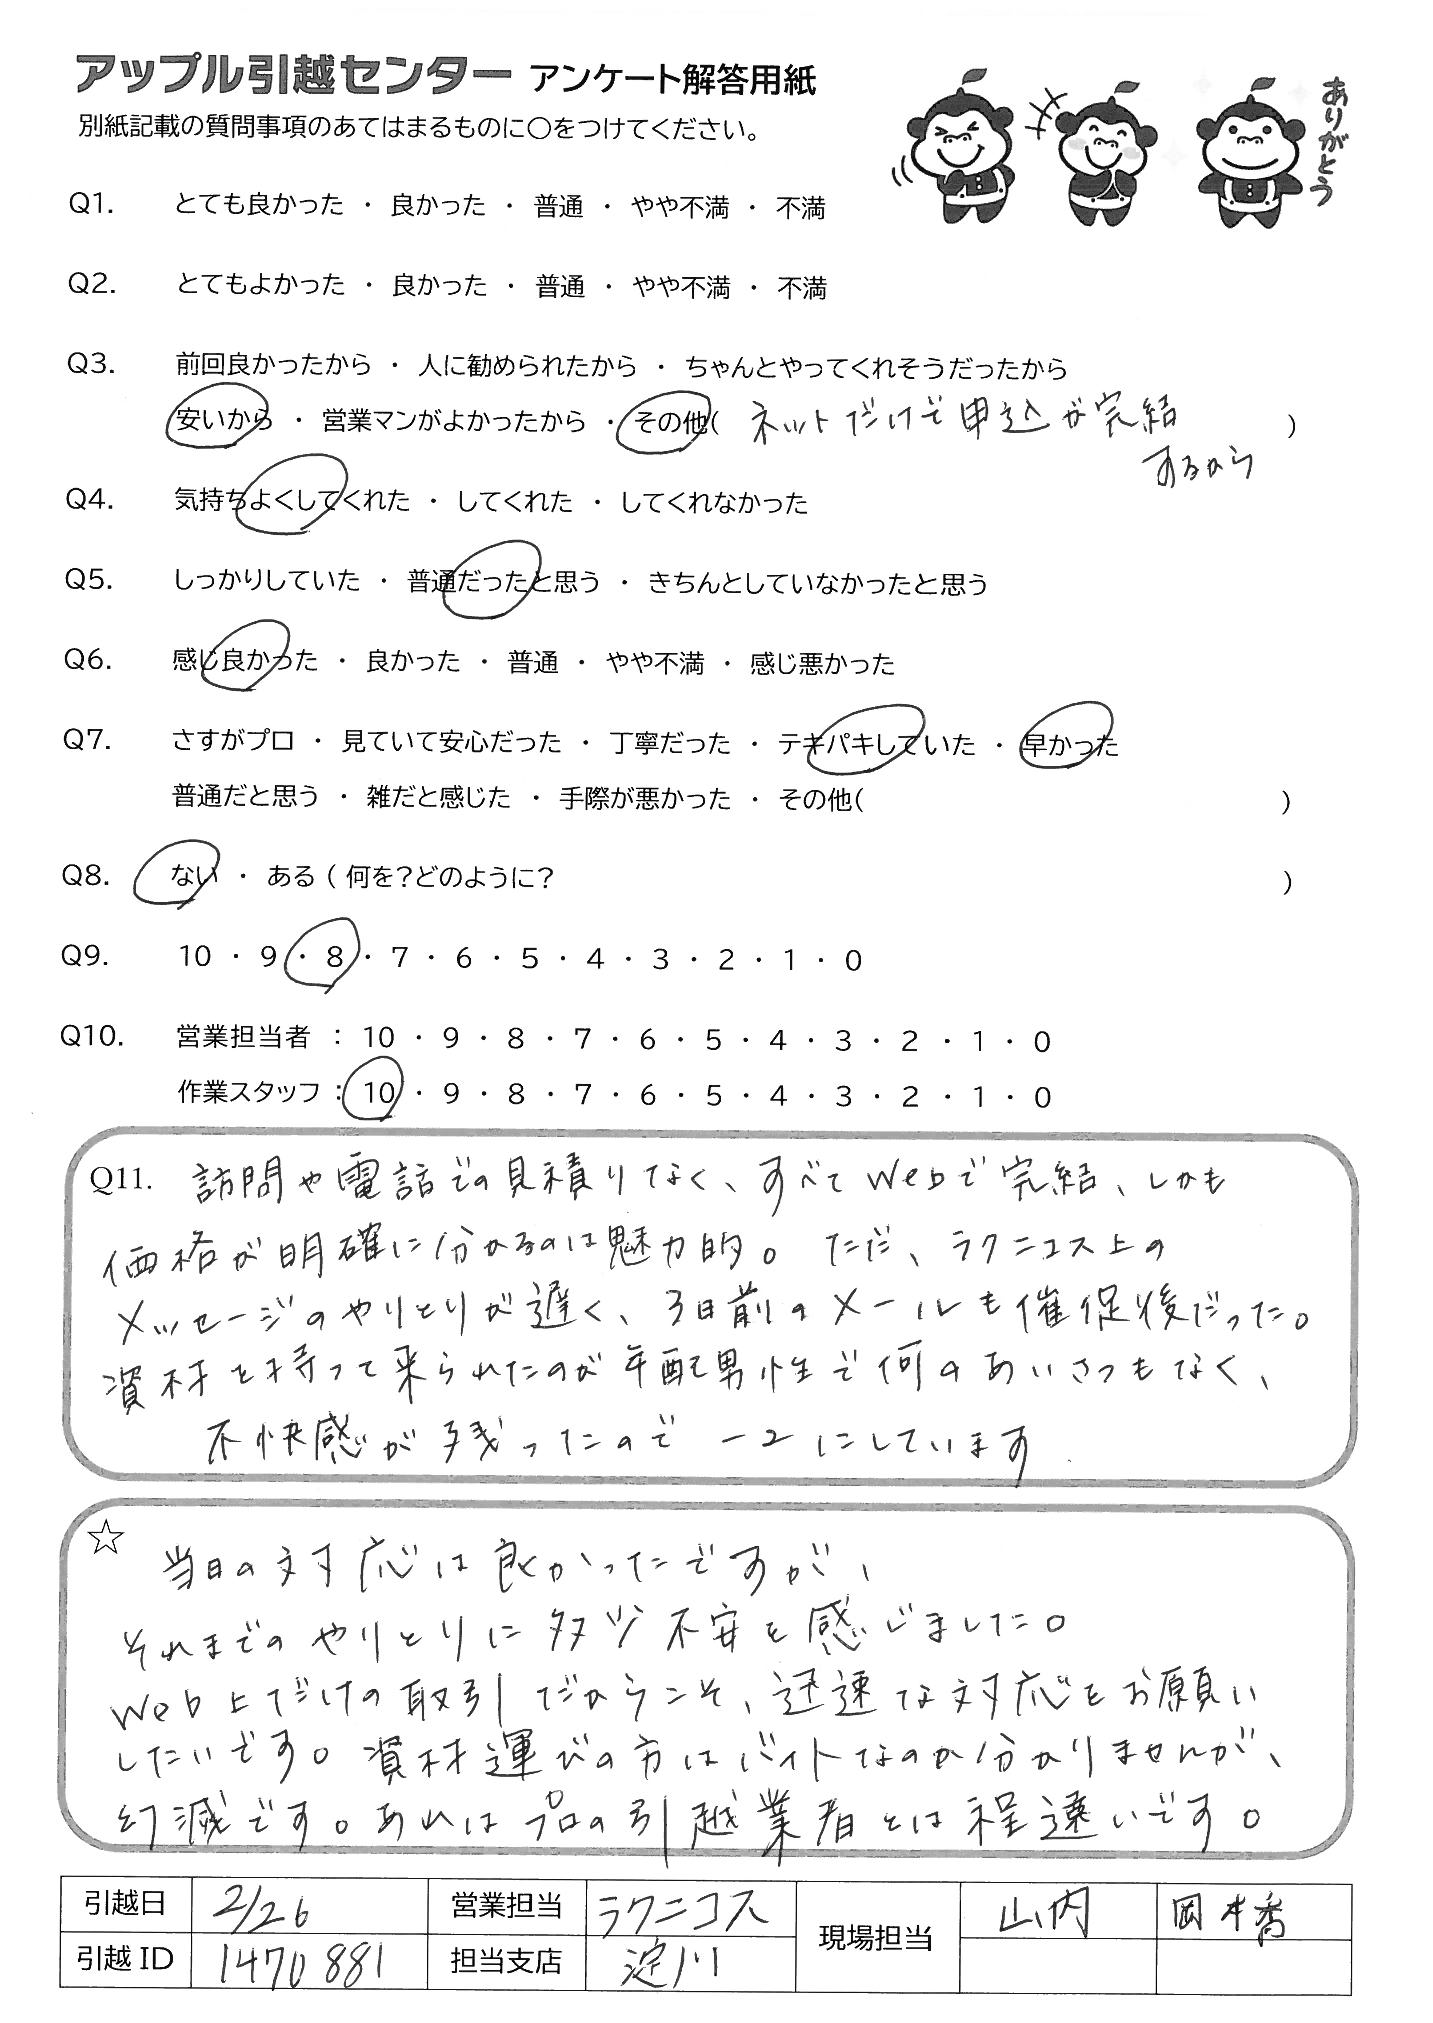 アップル引越センター アンケート解答用紙
別紙記載の質問事項のあてはまるものに○をつけてください。
ありがとう
Q1. とても良かった ・ 良かった ・ 普通 ・ やや不満 ・ 不満
Q2. とてもよかった ・ 良かった ・ 普通 ・ やや不満 ・ 不満
Q3. 前回良かったから ・ 人に勧められたから ・ ちゃんとやってくれそうだったから
安いから ・ 営業マンがよかったから ・ その他( ネットだけで申込が完結 )
するから
Q4. 気持ちよくしてくれた ・ してくれた ・ してくれなかった
Q5. しっかりしていた ・ 普通だったと思う ・ きちんとしていなかったと思う
Q6. 感じ良かった ・ 良かった ・ 普通 ・ やや不満 ・ 感じ悪かった
Q7. さすがプロ ・ 見ていて安心だった ・ 丁寧だった ・ テキパキしていた ・ 早かった
普通だと思う ・ 雑だと感じた ・ 手際が悪かった ・ その他( )
Q8. ない ・ ある ( 何を？どのように？ )
Q9. 10 ・ 9 ・ 8 ・ 7 ・ 6 ・ 5 ・ 4 ・ 3 ・ 2 ・ 1 ・ 0
Q10. 営業担当者 : 10 ・ 9 ・ 8 ・ 7 ・ 6 ・ 5 ・ 4 ・ 3 ・ 2 ・ 1 ・ 0
作業スタッフ : 10 ・ 9 ・ 8 ・ 7 ・ 6 ・ 5 ・ 4 ・ 3 ・ 2 ・ 1 ・ 0
Q11. 訪問や電話での見積りなく、すべてWebで完結、しかも
価格が明確に分かるのは魅力的。ただ、ラクニコス上の
メッセージのやりとりが遅く、3日前のメールも催促後だった。
資材を持って来られたのが年配男性で何のあいさつもなく、
不快感が残ったので－2にしています
☆ 当日の対応は良かったですが、
それまでのやりとりに多少不安を感じました。
Web上だけの取引だからこそ、迅速な対応をお願い
したいです。資材運びの方はバイトなのか分かりませんが、
幻滅です。あれはプロの引越業者とは程遠いです。
引越日 2/26 営業担当 ラクニコス 現場担当 山内 岡本喬
引越 ID 1470881 担当支店 淀川